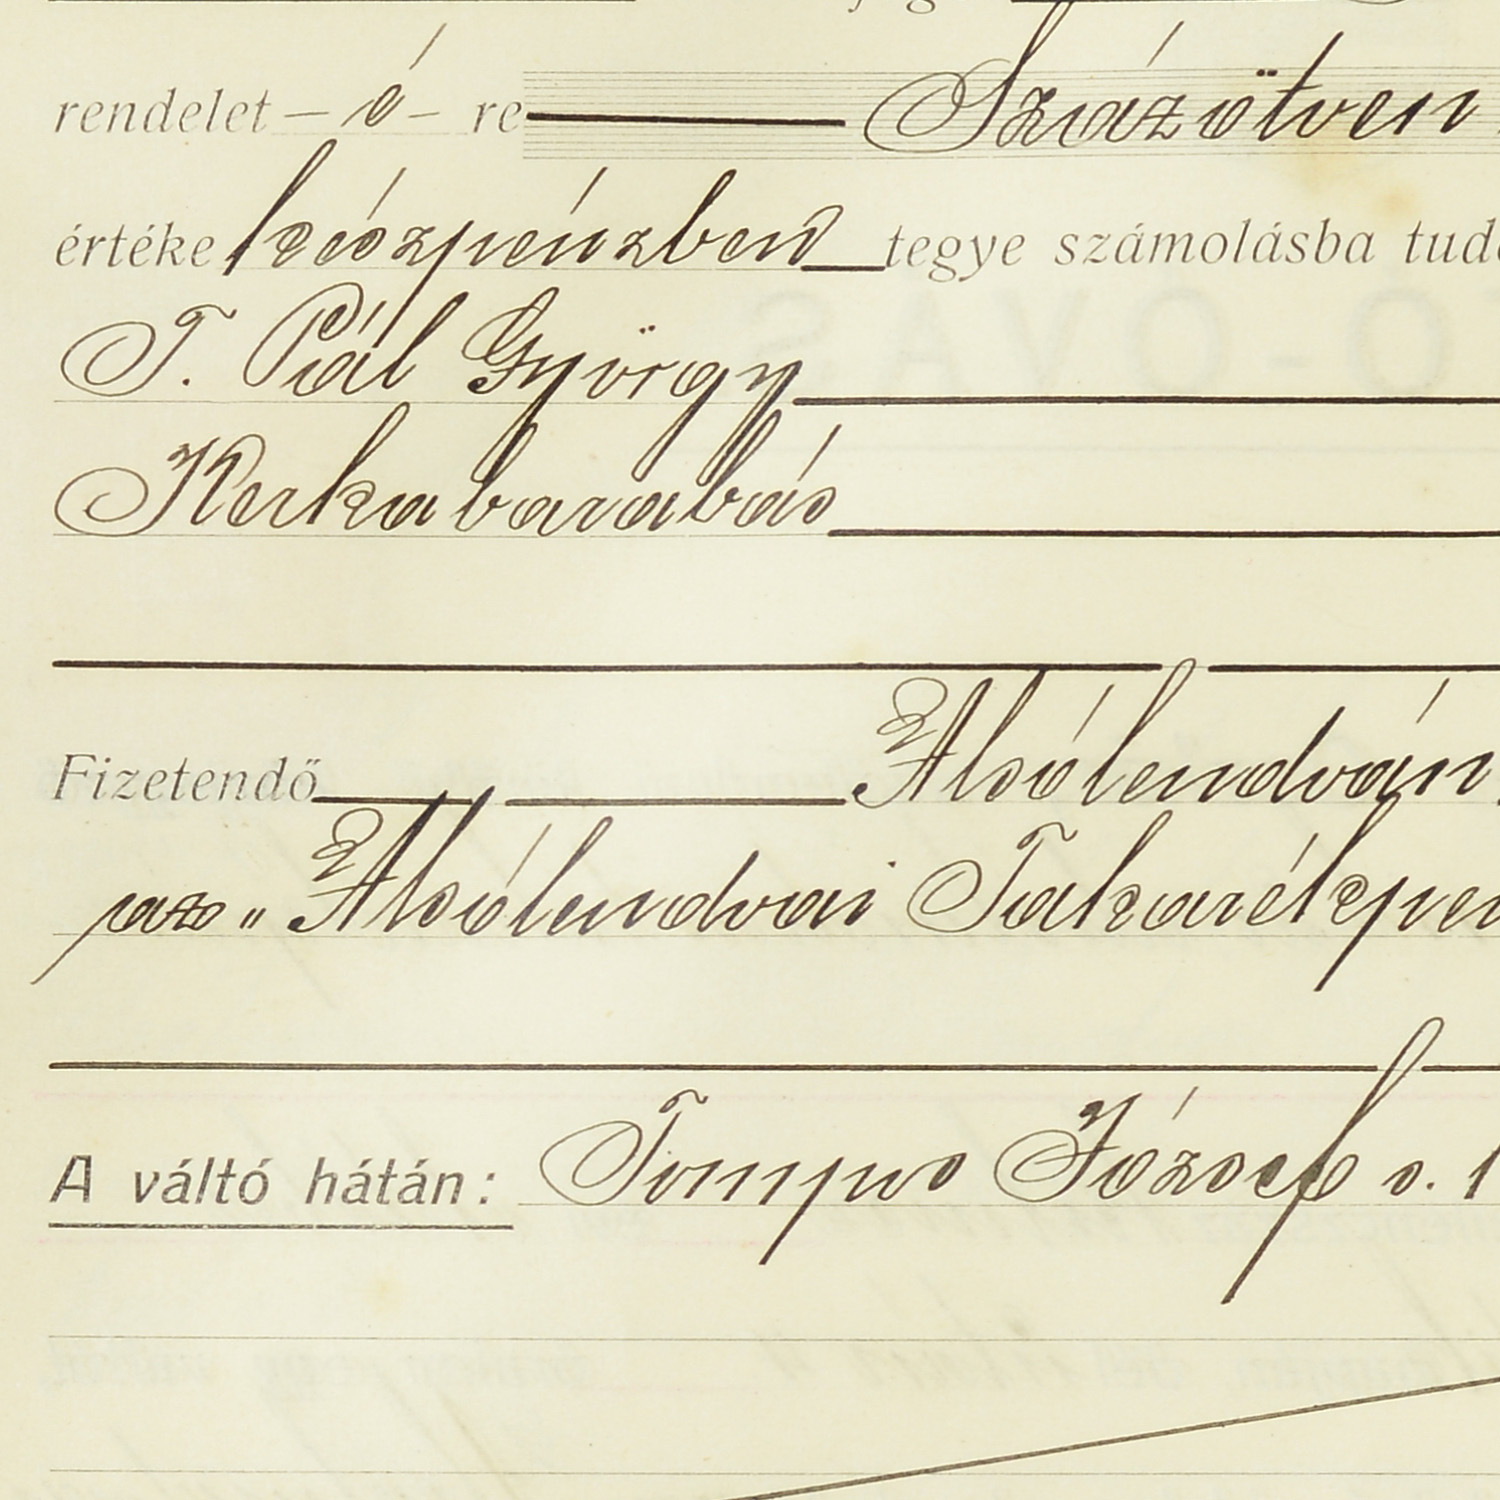 rendelet – ó – re Százötven
értéke készpénzben tegye számolásba
T. Pál György
Kerkabarabás
Fizetendő Alsólendván
az „Alsólendvai Takarékpén
A váltó hátán: Tompa József s.